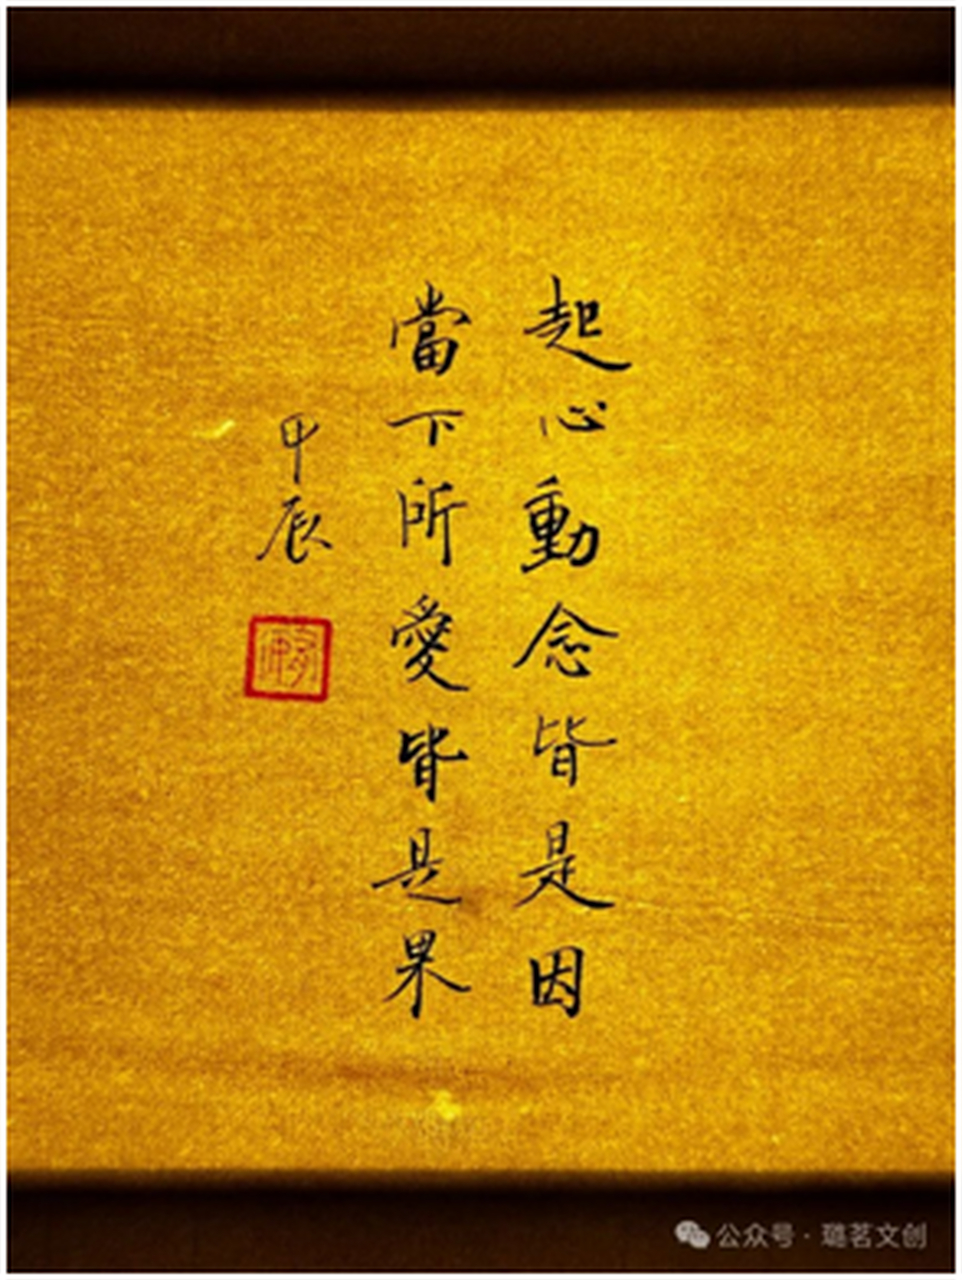 起心動念皆是因
當下所愛皆是果
甲辰
公众号·璐茗文创